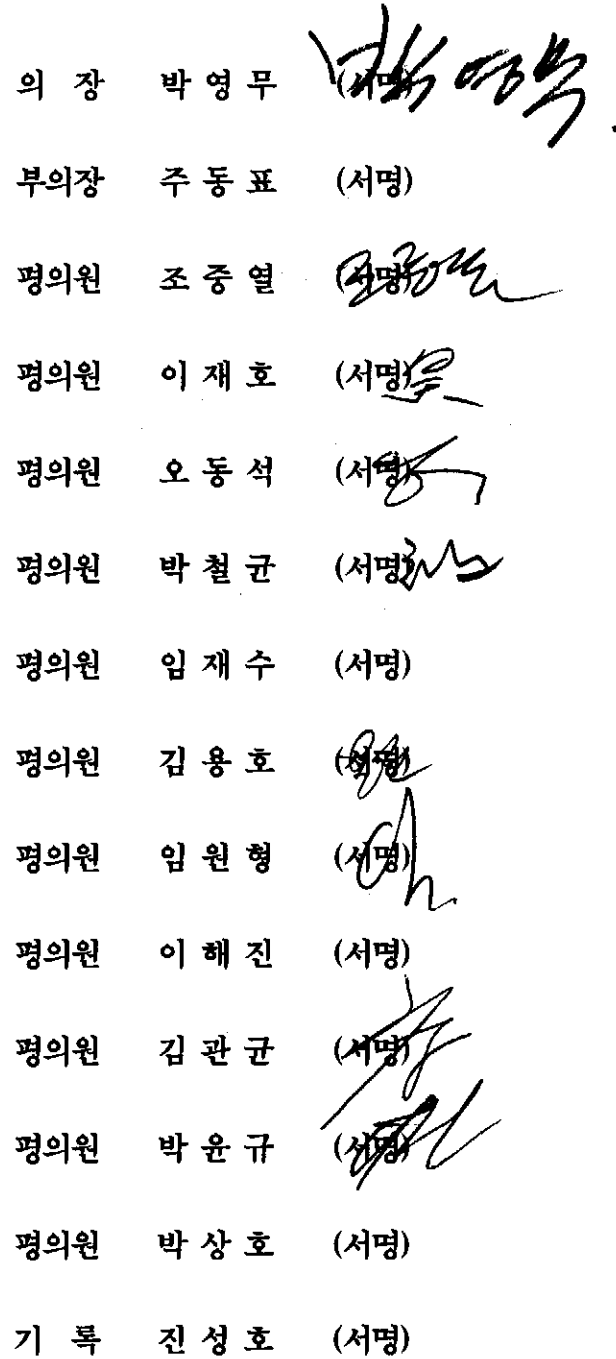 의 장 박 영 무 (서명) 박영무
부의장 주 동 표 (서명)
평의원 조 중 열 (서명) 조중열
평의원 이 재 호 (서명)
평의원 오 동 석 (서명)
평의원 박 철 균 (서명)
평의원 임 재 수 (서명)
평의원 김 용 호 (서명)
평의원 임 원 형 (서명)
평의원 이 해 진 (서명)
평의원 김 관 균 (서명)
평의원 박 윤 규 (서명)
평의원 박 상 호 (서명)
기 록 진 성 호 (서명)